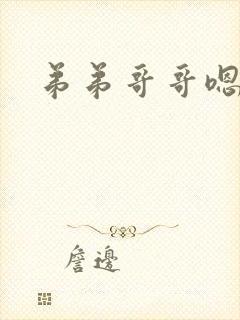 弟弟哥哥嗯
詹邊